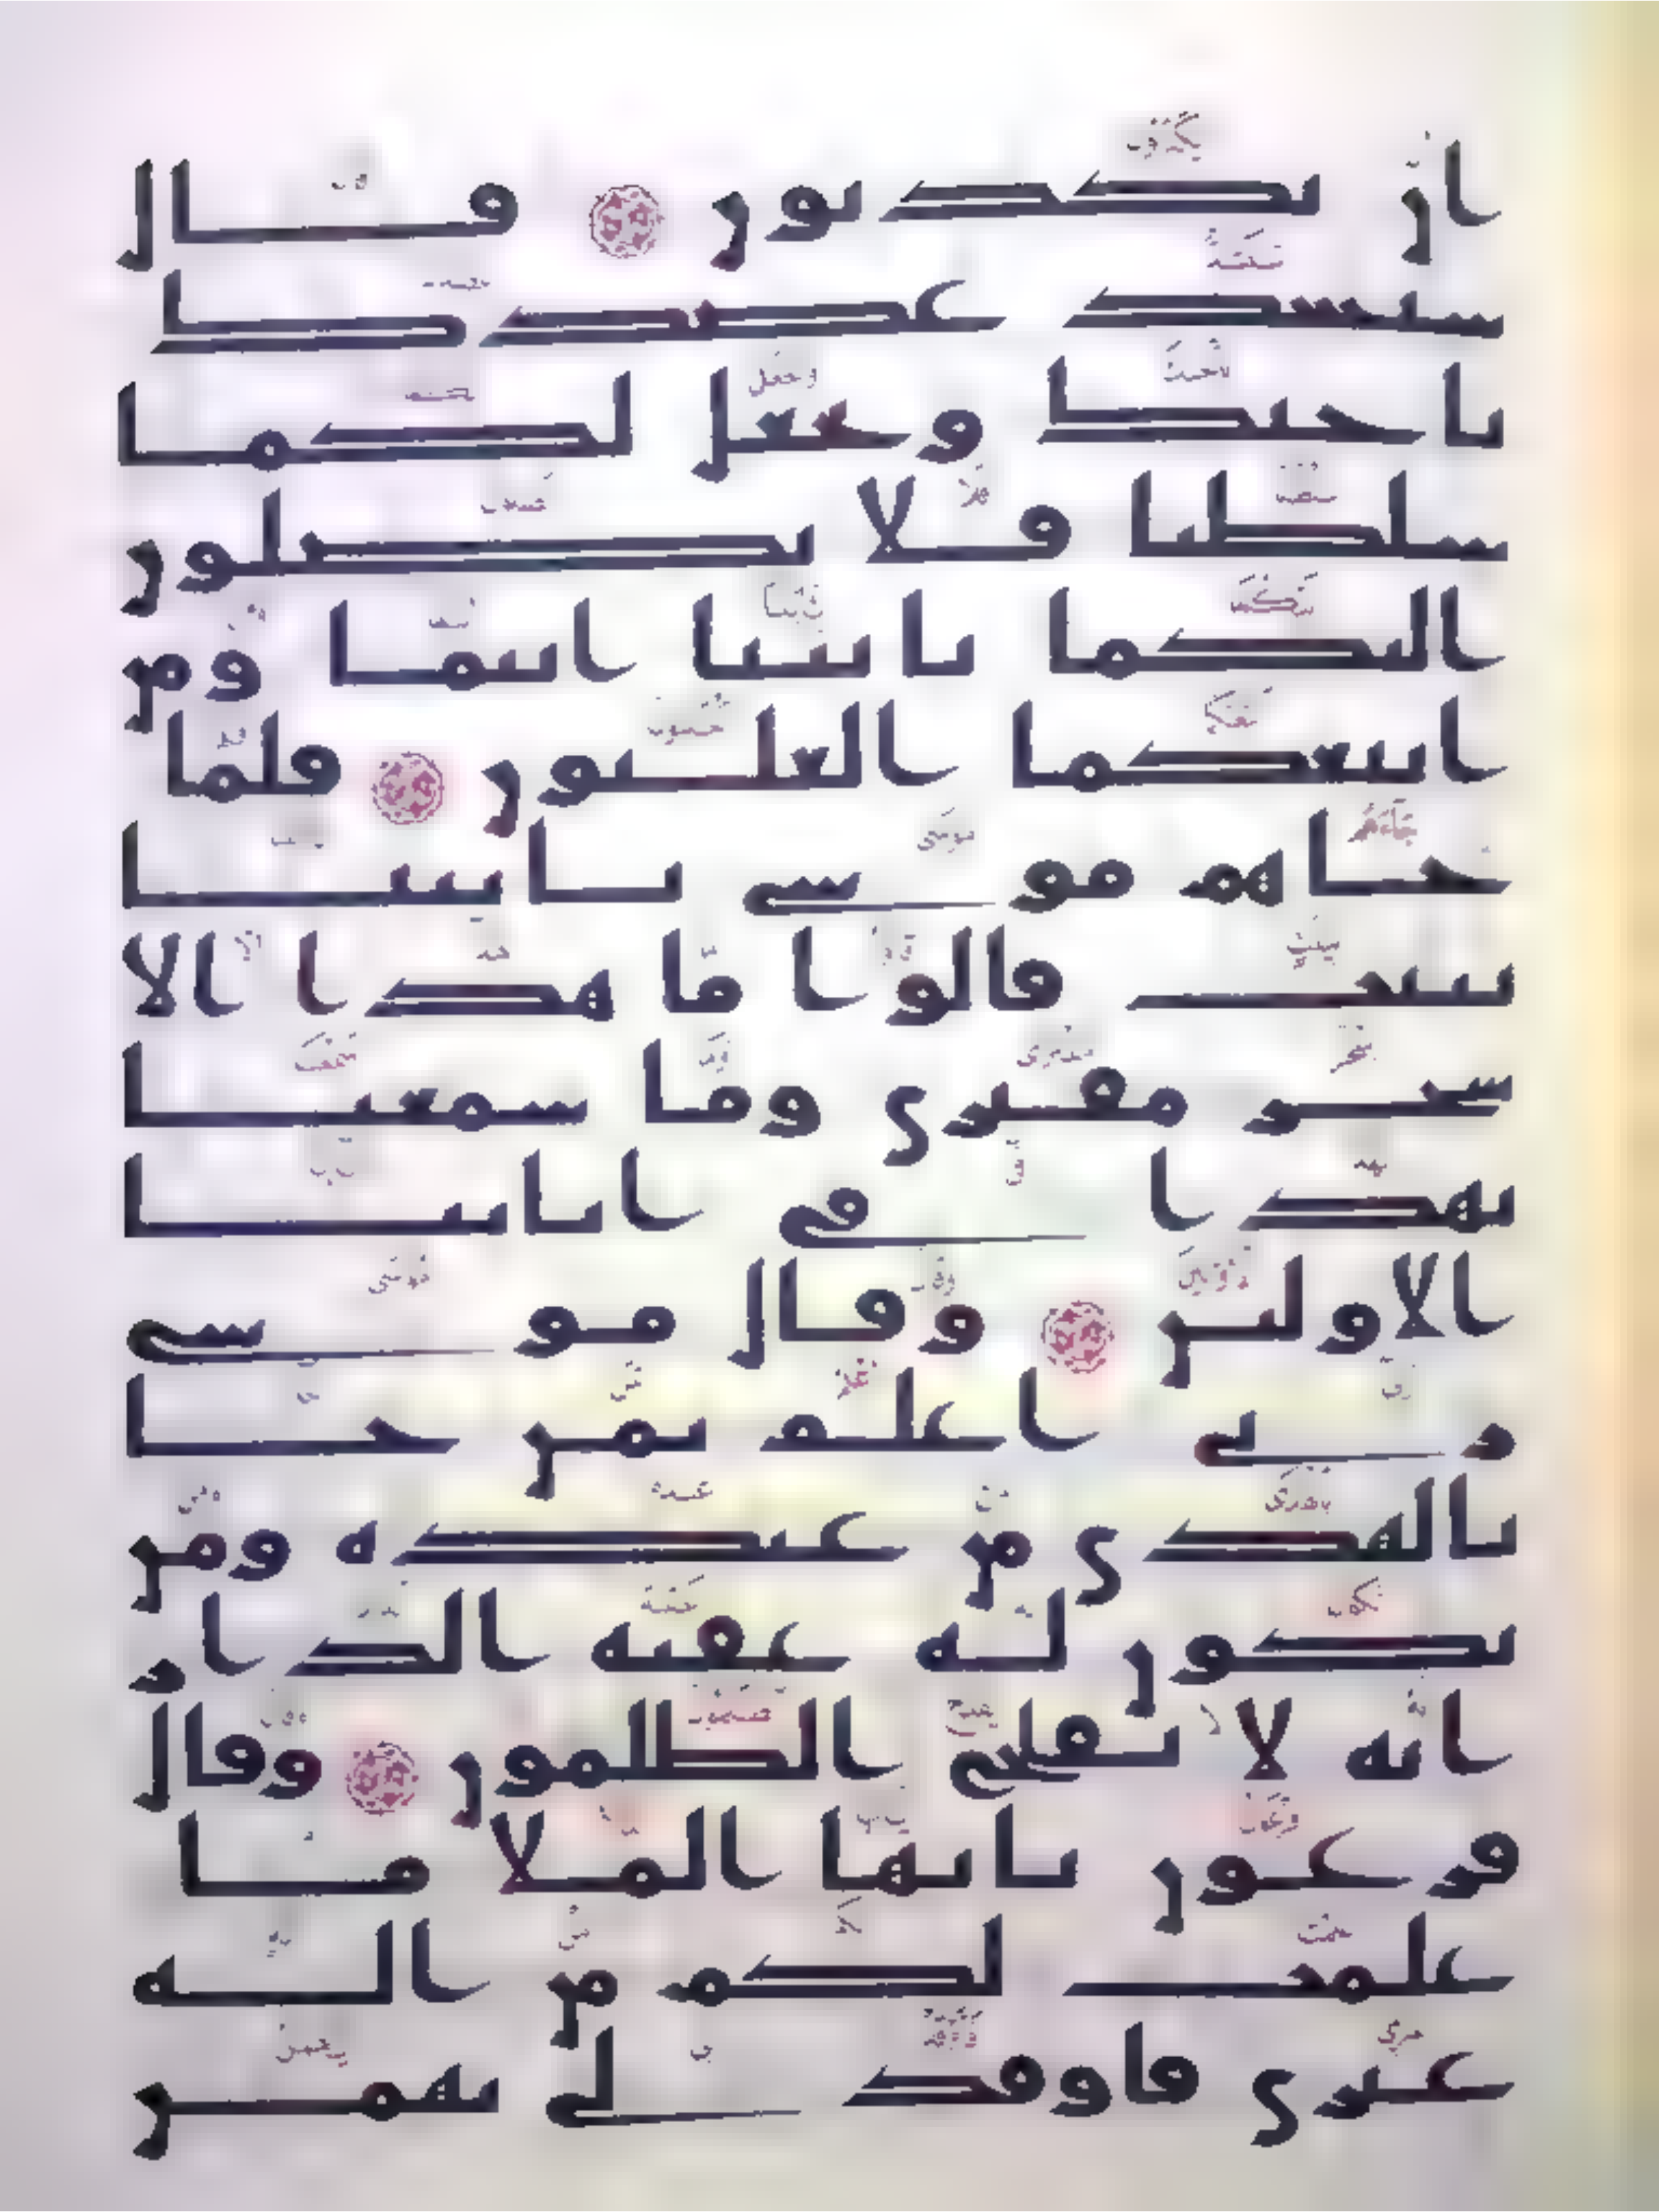 ان يكذبون قال
سنشد عضدك
باخيك ونجعل لكما
سلطنا فلا يصلون
اليكما بايتنا انتما ومن
اتبعكما الغلبون فلما
جاهم موسى بايتنا
بينت قالوا ما هذا الا
سحر مفترى وما سمعنا
بهذا في ابائنا
الاولين وقال موسى
ربي اعلم بمن جا
بالهدى من عنده ومن
يكون له عقبة الدار
انه لا يفلح الظلمون وقال
فرعون يايها الملا ما
علمت لكم من اله
غيري فاوقد لي يهمن